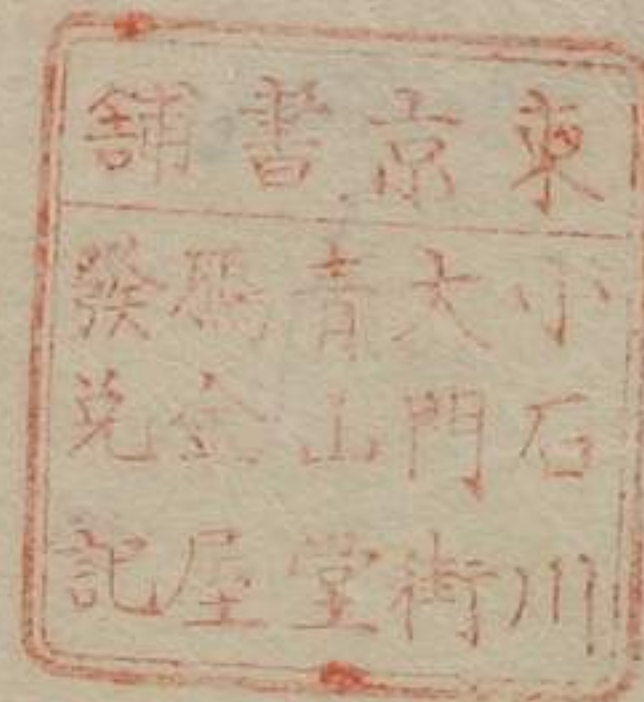 東京書舖
小石川
大門街
青山堂
鴈金屋
發兌記